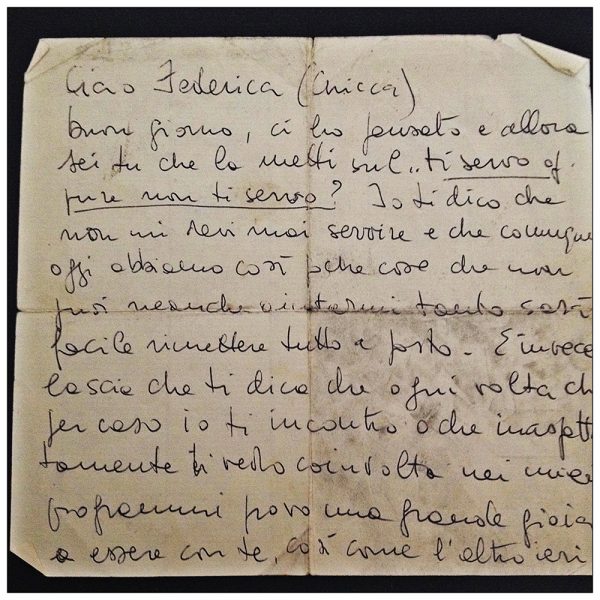 Ciao Federica (Chicca)
buon giorno, ci ho pensato e allora
sei tu che la metti sul „ti servo op
pure non ti servo? Io ti dico che
non mi devi mai servire e che comunque
oggi abbiamo così poche cose che non
puoi neanche aiutarmi tanto sarà
facile rimettere tutto a posto. E invece
lascia che ti dica che ogni volta ch
per caso io ti incontro o che inaspet
tamente ti vedo coinvolta nei miei
programmi provo una grande gioia
a essere con te, così come l'altro ieri